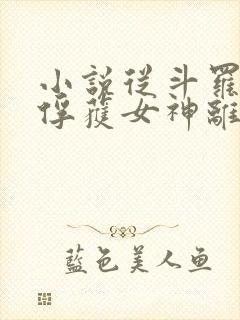 小說從斗羅
俘蒦女神離
藍色美人鱼